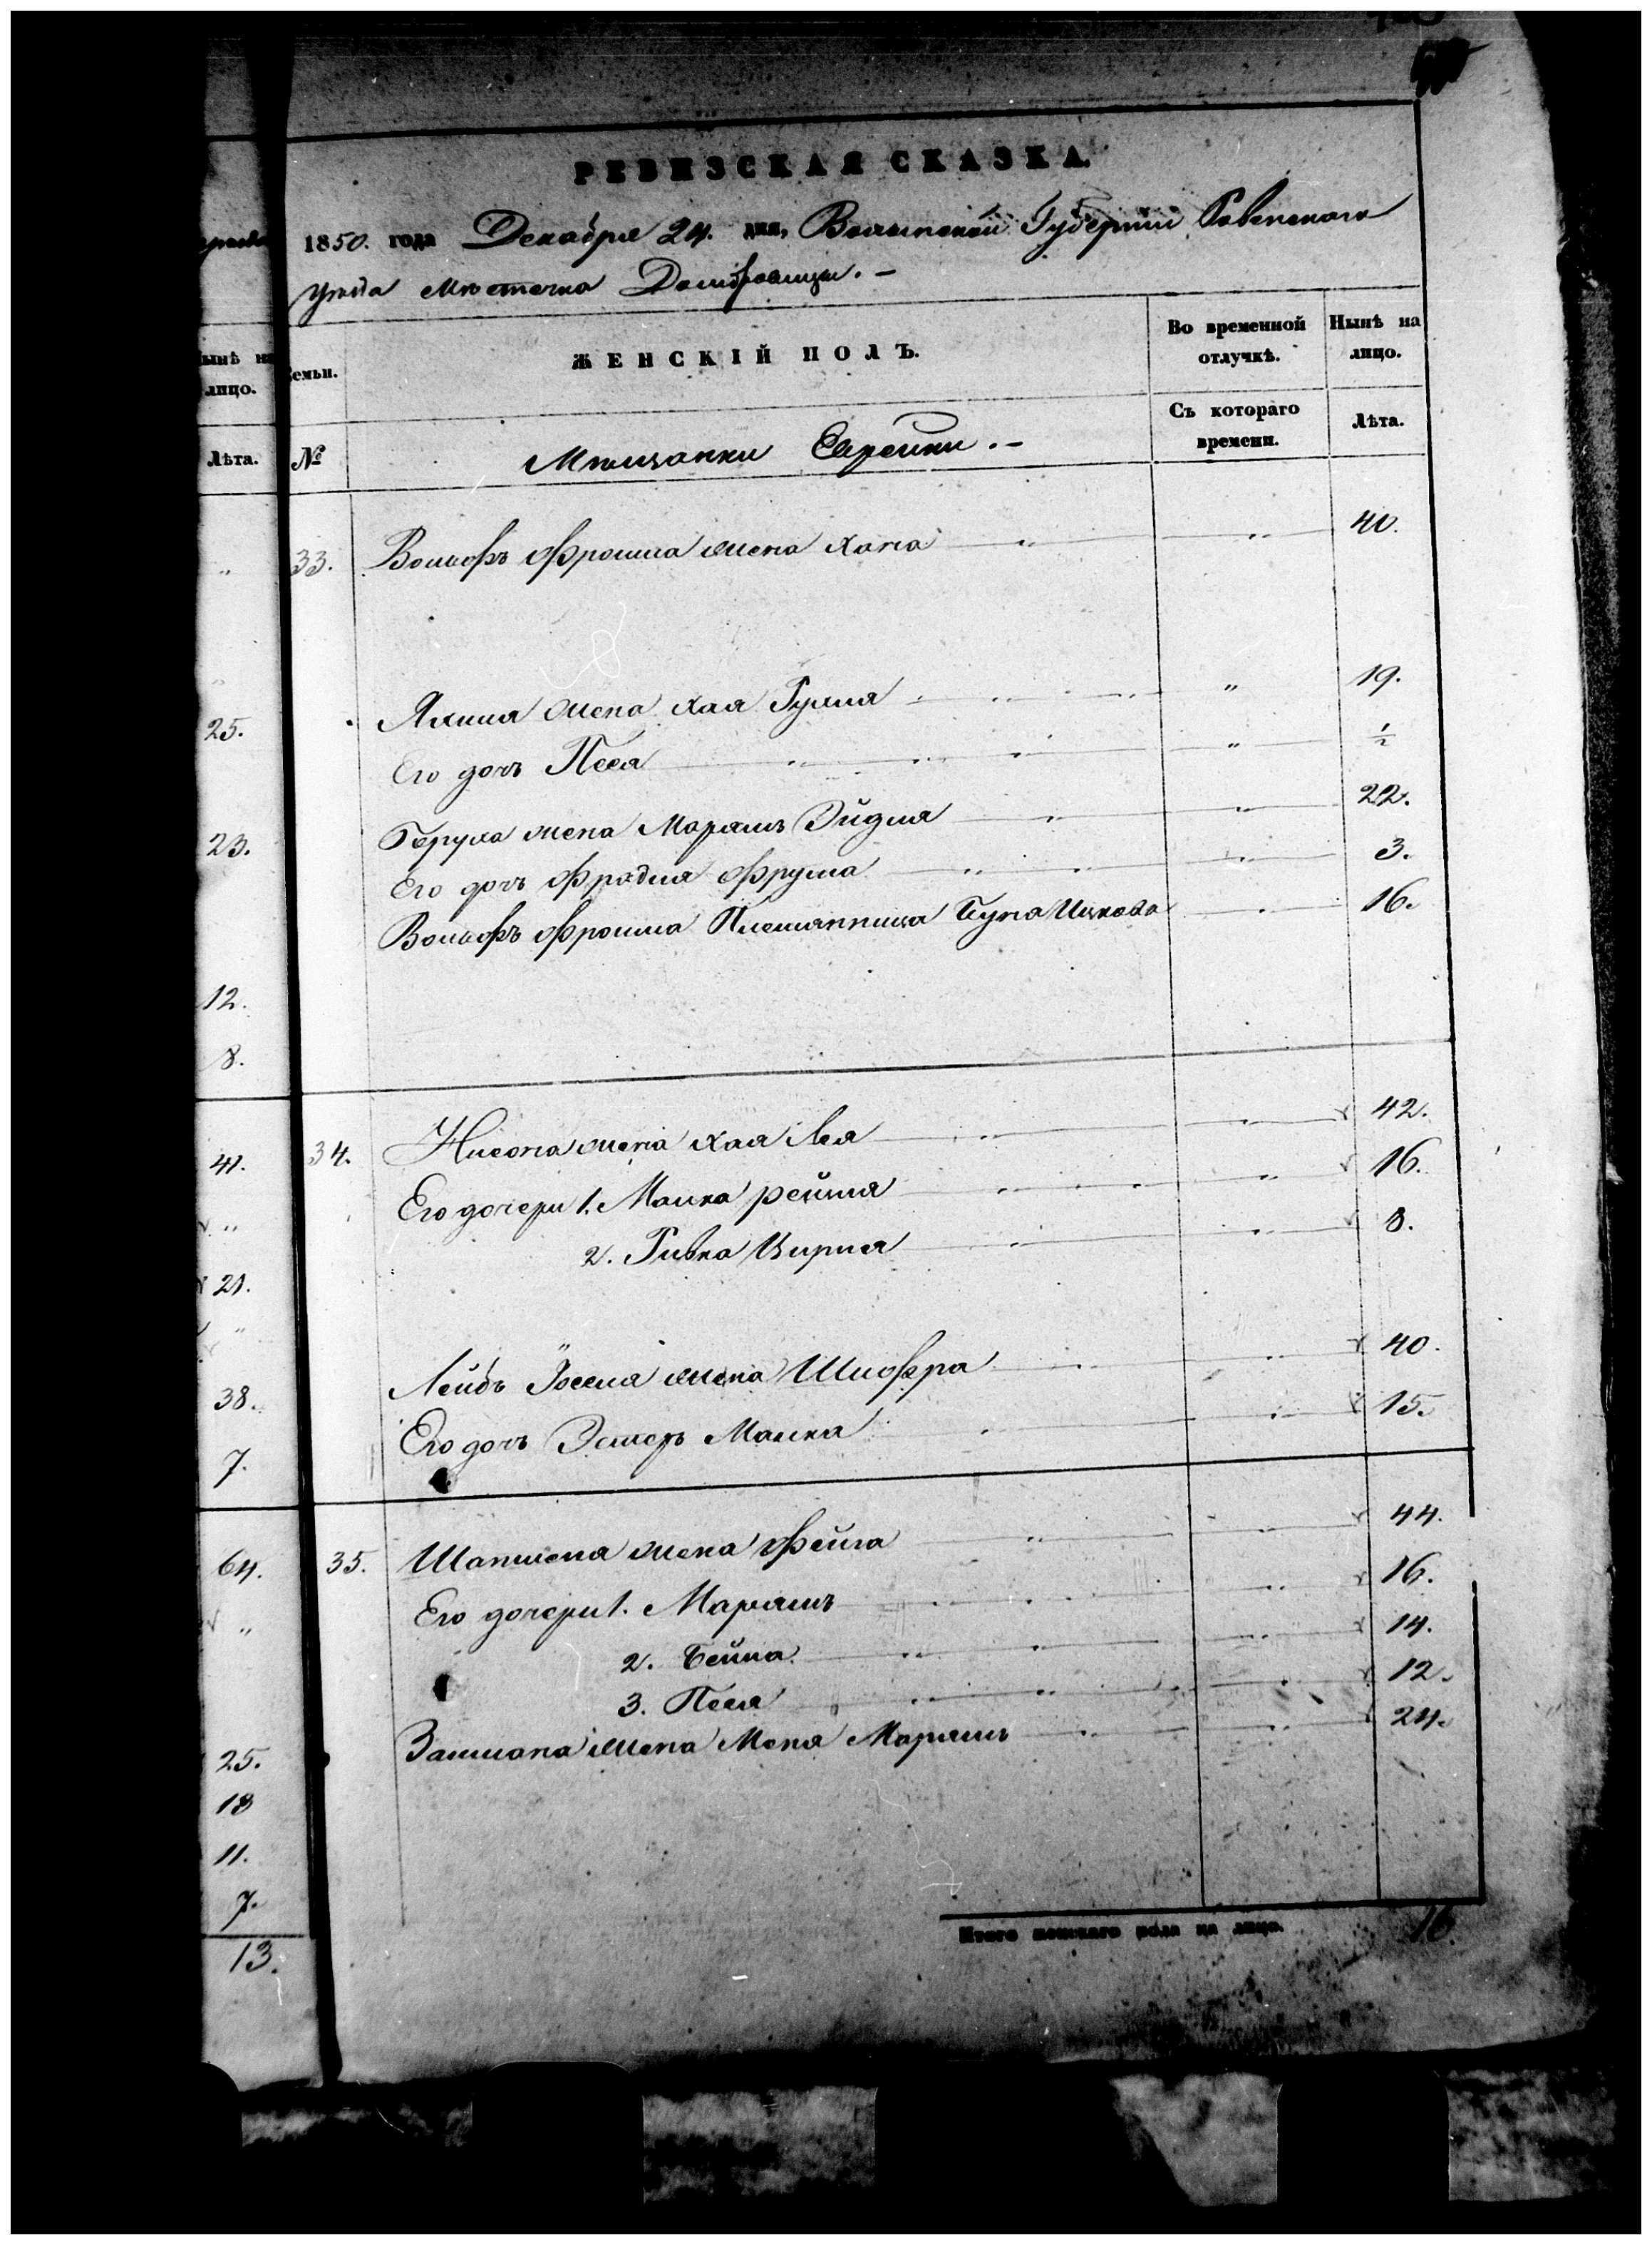 РЕВИЗСКАЯ СКАЗКА.
1850. года Декабря 24. дня, Волынской Губернии Ровенского
уезда Местечка Домбровицы. –
Нынѣ на лицо.
Лѣта.
Семьи.
№
ЖЕНСКІЙ ПОЛЪ.
Во временной отлучкѣ.
Съ котораго времени.
Нынѣ на лицо.
Лѣта.
Мѣщанки Еврейки. –
33. Вольфъ Фроима жена Хана " " 40.
25.
Жена Хая " " 19.
Его дочь Песя " " " " ½
23.
Беруха жена Марьямъ Эйдля " " 22.
Его дочь Фрадля Фрума " " " 3.
Вольфъ Фроима Племянница Буна Ицкова " 16.
12.
8.
41.
34. Нисона жена Хая Лея " " 42.
Его дочери 1. Малка Рейзля " " " 16.
2. Ривка Цирля " " 8.
21.
Лейбъ Жена Шифра " " 40.
38.
Его дочь Эстеръ Малка " " 15.
7.
64.
35. жена Фейга " " 44.
Его дочери 1. Марьямъ " " " 16.
2. Бейла " " " 14.
3. Песя " " " 12.
Залмана жена Марьямъ " " 24.
25.
18
11.
7.
13.
Итого женскаго пола на лицо. 16